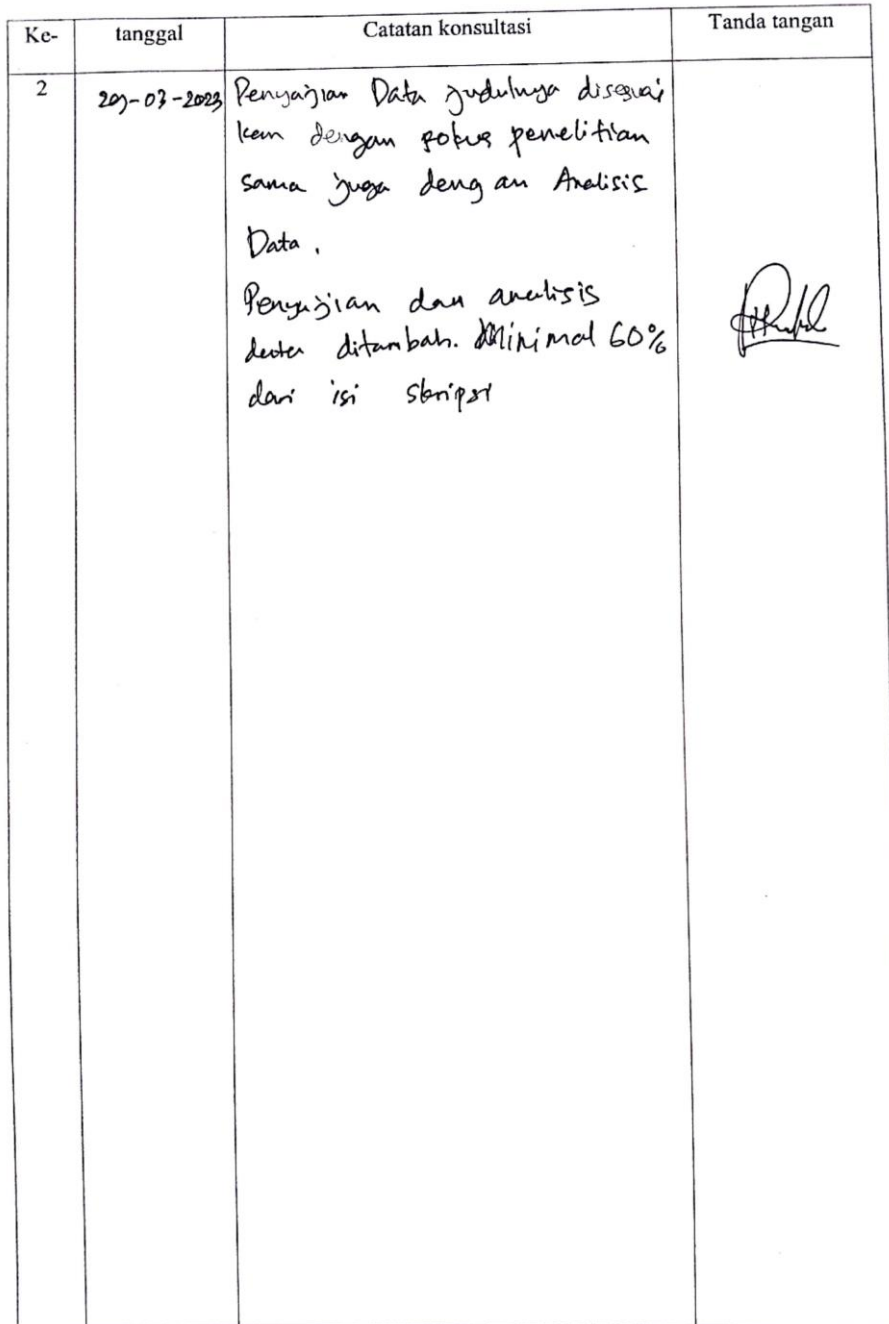 Ke- tanggal Catatan konsultasi Tanda tangan
2 -03-2023 Penyajian Data judulnya disesuai
kan dengan fokus penelitian
sama juga dengan Analisis
Data.
Penyajian dan analisis
data ditambah. Minimal 60%
dari isi skripsi